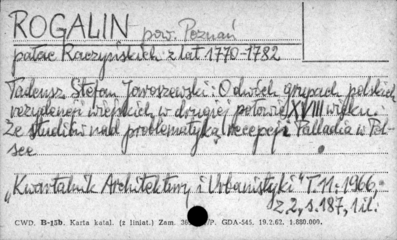 ROGALIN pow. Poznań
pałac Raczyńskich z lat 1770-1782
Tadeusz Stefan Jaroszewski: O dwóch grupach polskich
rezydencji wiejskich w drugiej połowie XVIII wieku.
Ze studiów nad problematyką recepcji Palladia w Pol-
sce
„Kwartalnik Architektury i Urbanistyki" T.11: 1966,
z.2, s.187, 1 il.
CWD. B-15b. Karta katal. (z liniat.) Zam. GDA-545, 19.2.62. 1.880.000.